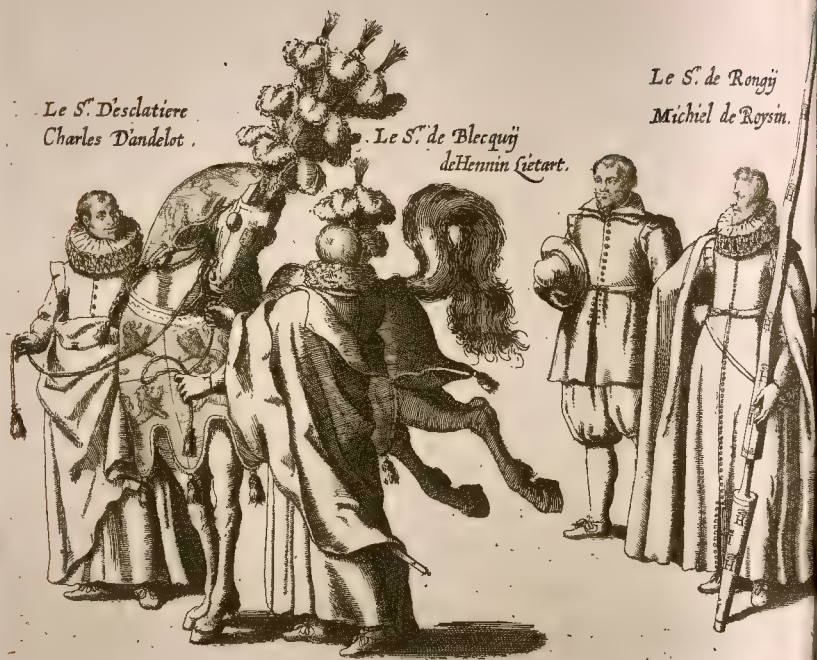 Le Sr. D'esclatiere
Charles D'andelot.
Le Sr. de Blecquij
de Hennin Lietart.
Le Sr. de Rongij
Michiel de Roysin.